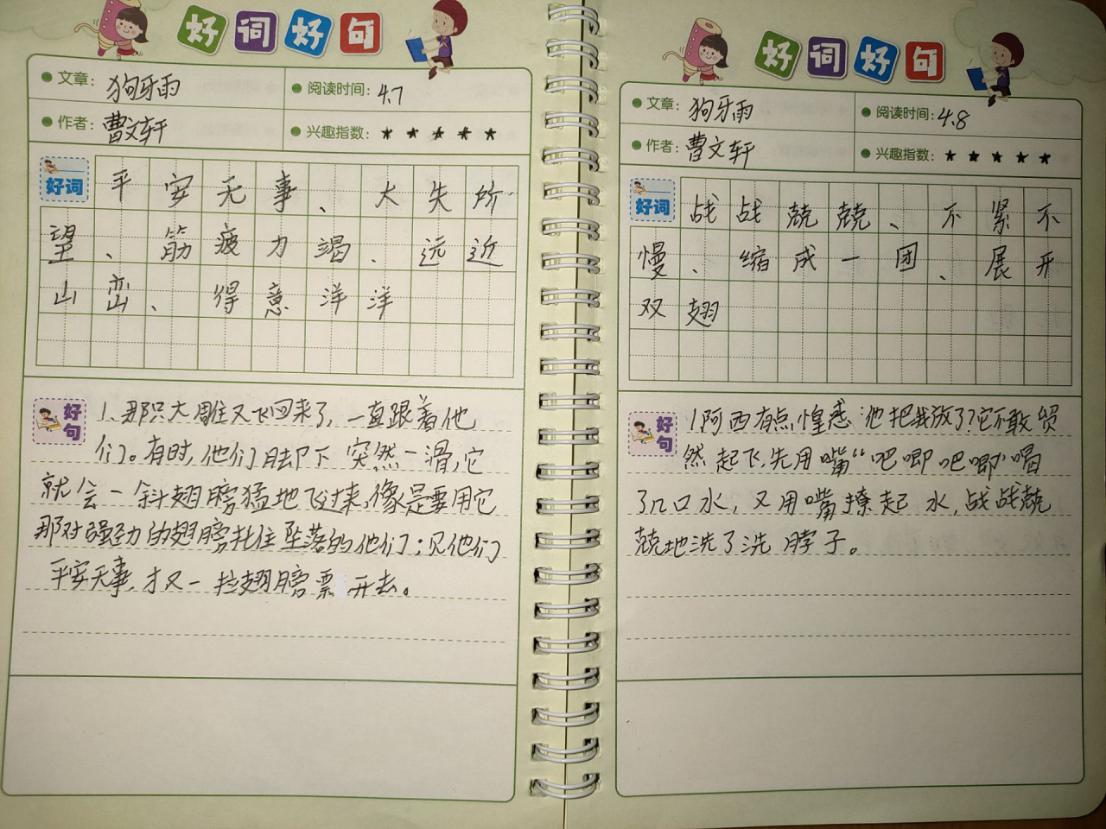 好词好句
文章：狗牙雨
阅读时间：4.7
作者：曹文轩
兴趣指数：★★★★★
好词
平安无事、大失所
望、筋疲力竭、远近
山峦、得意洋洋
好句
1、那只大雕又飞回来了，一直跟着他
们。有时，他们脚下突然一滑，它
就会一斜翅膀猛地飞过来，像是要用它
那对强劲的翅膀托住坠落的他们；见他们
平安无事，才又一拉翅膀票开去。
好词好句
文章：狗牙雨
阅读时间：4.8
作者：曹文轩
兴趣指数：★★★★★
好词
战战兢兢、不紧不
慢、缩成一团、展开
双翅
好句
1.阿西有点惶惑：他把我放了？它不敢贸
然起飞，先用嘴“吧唧吧唧”喝
了几口水，又用嘴撩起水，战战兢
兢地洗了洗脖子。